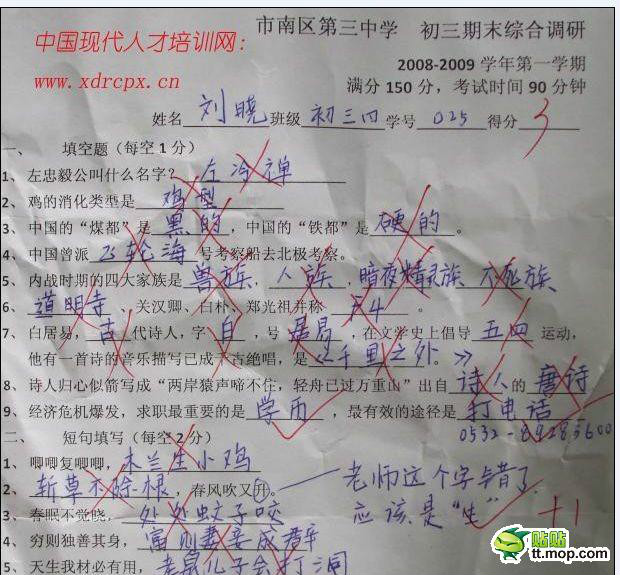 中国现代人才培训网:
www.xdrcpx.cn
市南区第三中学 初三期末综合调研
2008-2009 学年第一学期
满分 150 分，考试时间 90 分钟
姓名 刘晓 班级 初三四 学号 025 得分 3
一、 填空题（每空 1 分）
1、左忠毅公叫什么名字？ 左冷禅
2、鸡的消化类型是 鸡型
3、中国的“煤都”是 黑的 ，中国的“铁都”是 硬的 。
4、中国曾派 飞轮海 号考察船去北极考察。
5、内战时期的四大家族是 兽族 ， 人族 ， 暗夜精灵族 不死族
6、 道明寺 、关汉卿、白朴、郑光祖并称 F4 。
7、白居易， 古 代诗人，字 白 ，号 居易 ，在文学史上倡导 五四 运动，
他有一首诗的音乐描写已成千古绝唱，是 《千里之外。》
8、诗人归心似箭写成“两岸猿声啼不住，轻舟已过万重山”出自 诗人 的 唐诗
9、经济危机爆发，求职最重要的是 学历 ，最有效的途径是 打电话
0532-89283600
二、 短句填写（每空 2 分）
1、唧唧复唧唧， 木兰生小鸡
2、 斩草不除根 ，春风吹又升。 老师这个字错了
应该是“生” +1
3、春眠不觉晓， 处处蚊子咬
4、穷则独善其身， 富则妻妾成群
5、天生我材必有用， 老鼠儿子会打洞
贴贴
tt.mop.com